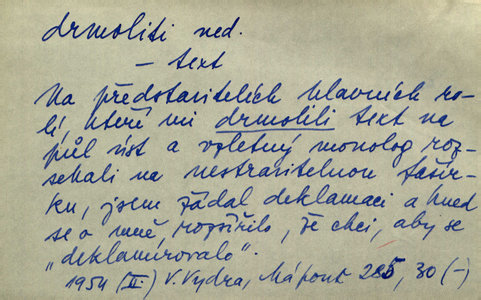 drmoliti ned.
— text
Na představitelích hlavních ro-
lí, kteří mi drmolili text na
půl úst a vzletný monolog roz-
sekali na nestravitelnou fašír-
ku, jsem žádal deklamaci a hned
se o mně rozšířilo, že chci, aby se
„deklamovalo".
1954 (II) V. Vydra, Má pout 285, 30 (-)